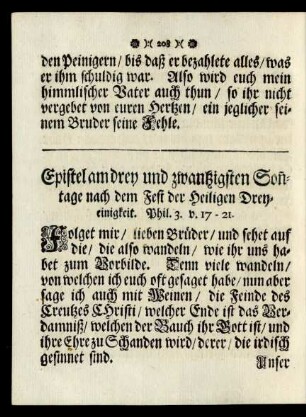 208
den Peinigern/ bis daß er bezahlete alles/ was
er ihm schuldig war. Also wird euch mein
himmlischer Vater auch thun/ so ihr nicht
vergebet von euren Hertzen/ ein jeglicher sei-
nem Bruder seine Fehle.
Epistel am drey und zwantzigsten Soñ-
tage nach dem Fest der Heiligen Drey-
einigkeit. Phil. 3. v. 17 - 21.
Folget mir/ lieben Brüder/ und sehet auf
die/ die also wandeln/ wie ihr uns ha-
bet zum Vorbilde. Denn viele wandeln/
von welchen ich euch oft gesaget habe/ nun aber
sage ich auch mit Weinen/ die Feinde des
Creutzes CHristi/ welcher Ende ist das Ver-
damniß/ welchen der Bauch ihr Gott ist/ und
ihre Ehre zu Schanden wird/ derer/ die irdisch
gesinnet sind.
Unser